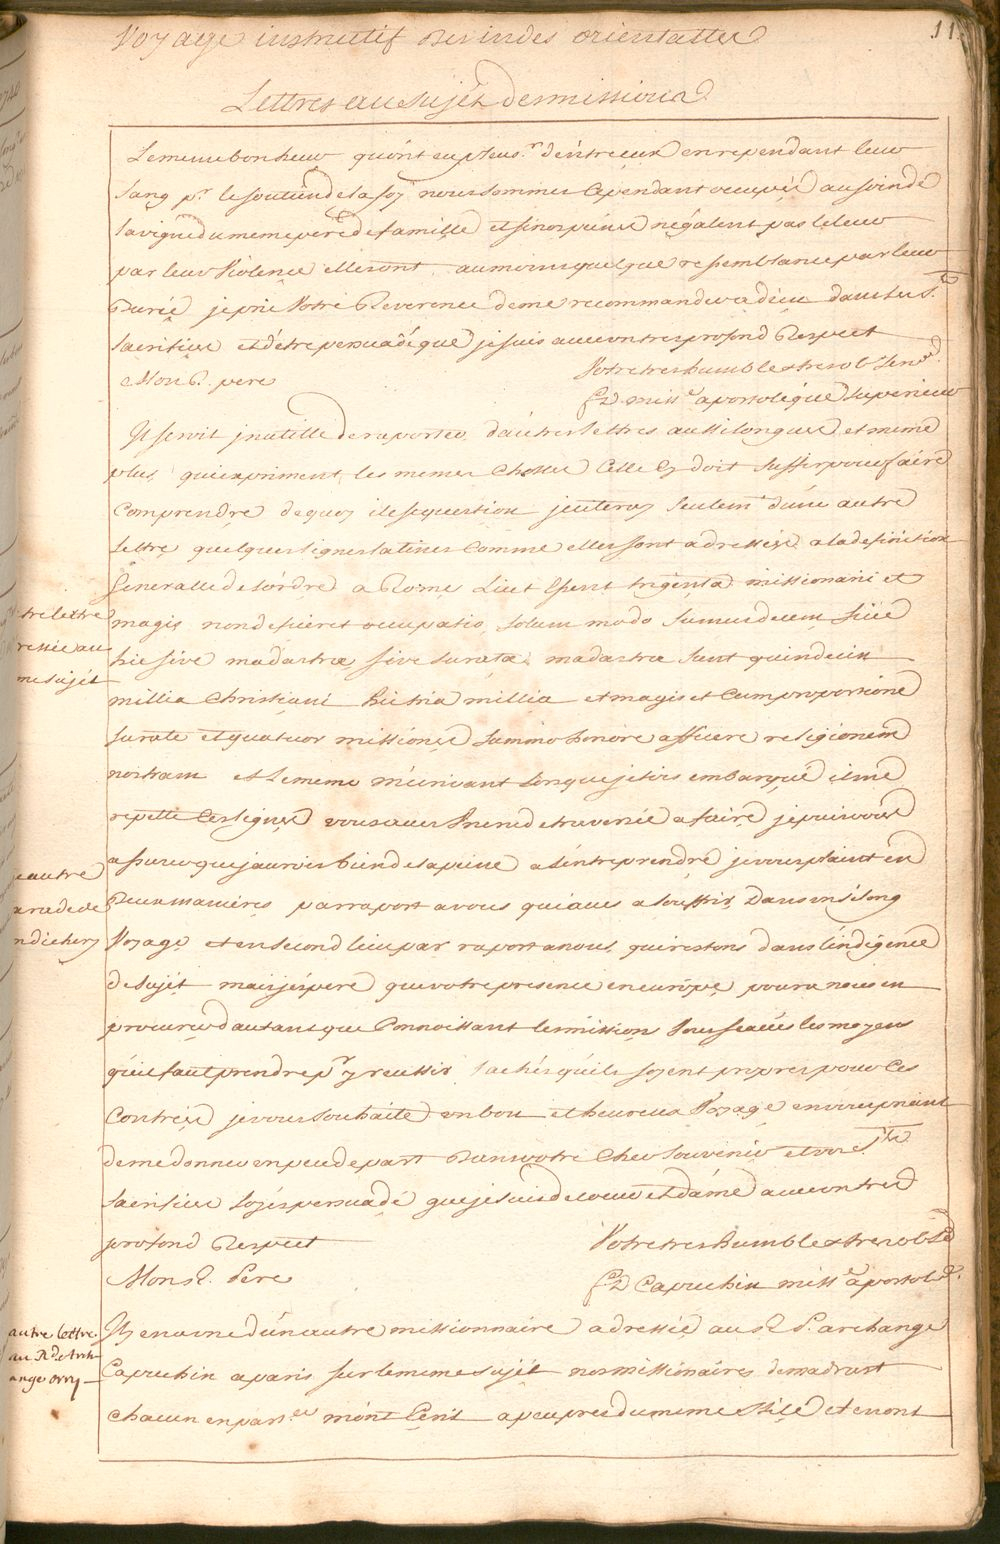 Voyage instructif des indes orientalles
11
Lettres au sujet des missions
Le meme bonheur qu'ont eu plus.rs d'entre eux en rependant leur
sang pr. le soutien de la foy nous sommes cependant occupés au soin de
la vigne du meme pere de famille et si nos peines n'egalent pas le leur
par leur violence elles ont au moins quelque ressemblance par leur
Durée je prie Votre Reverence de me recommander a dieu dans les sts
sacrifices et d'etre persuadé que je suis avec un tres profond Respect
Mon R. pere
Votre tres humble et tres ob. Serv.
miss.e apostolique Superieur
Il seroit jnutille de raporter d'autres lettres aussi longues et meme
plus, qui expriment les memes choses celle cy doit suffir pour faire
Comprendre de quoy il est question jenteray seulem.t d'une autre
lettre quelques lignes latines comme elles sont adressées a la definition
Generalle de l'ordre a Rome Licet essent trigenta missionarii et
magis non deficeret occupatio, solum modo sumus decem sive
hic sive madastrae sive suratae madastrae sunt quindecim
millia christiani hic tria millia et magis et cum proportione
suratae et quatuor missiones summo honore afficere religionem
nostram et le meme m'ecrivant lorsque j'etois embarqué il me
repette ces lignes vous avez bien de traversée a faire je puis vous
assurer que j'aurois bien de la peine a l'entreprendre je vous plaint en
Deux manieres par raport a vous qui aves a souffrir dans un si long
Voyage et en second lieu par raport a nous qui restons dans l'indigence
de sujet mais j'espere que votre presence en europe poura nous en
procurer d'autant que connoissant les missions vous scavés les moyens
qu'il faut prendre pr y reussir tachés qu'ils soyent propres pour ces
Contrées je vous souhaite un bon et heureux Voyage en vous priant
de me donner un peu de part dans votre cher souvenir et vos sts
sacrifices soyés persuadé que je suis de coeur et d'ame avec un tres
profond Respect
Votre tres humble et tres ob.
Mon R. Pere
Capuchin miss.e apostol.
Il en a une d'un autre missionnaire adressée au R. P. archange
Capuchin a paris sur le meme sujet nos missionaires de madrast
chacun en par.er m'ont ecrit a peu pres du meme stile et en ont
tre lettre
ressée au
me sujet
autre
a rade de
ndichery
autre lettre
au R de Arch
ange orry